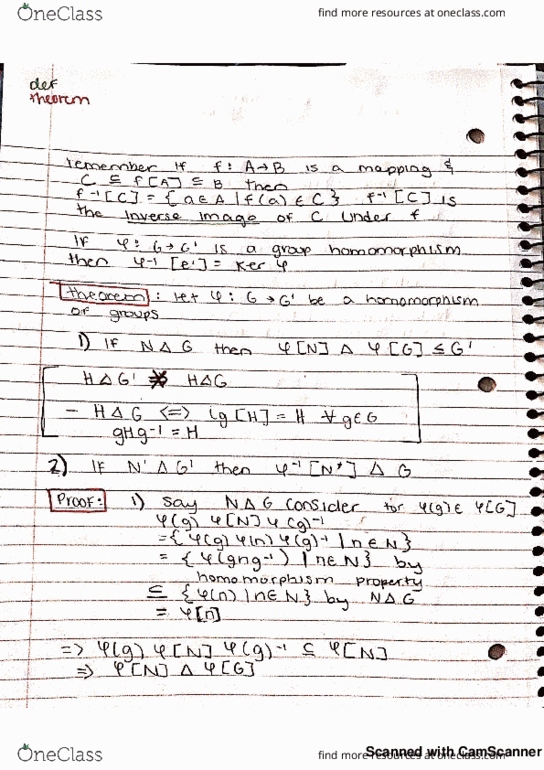 OneClass
find more resources at oneclass.com
def
theorem
remember if f: A→B is a mapping &
C ⊆ f[A] ⊆ B then
f⁻¹[C] = {a∈A | f(a) ∈ C} f⁻¹[C] is
the inverse image of C under f
If φ: G→G' is a group homomorphism
then φ⁻¹[e'] = Ker φ
theorem: let φ: G→G' be a homomorphism
of groups
1) If N Δ G then φ[N] Δ φ[G] ≤ G'
H Δ G' ⇏ H Δ G
- H Δ G <=> ig[H] = H ∀ g∈G
gHg⁻¹ = H
2) If N' Δ G' then φ⁻¹[N'] Δ G
Proof: 1) Say N Δ G consider for φ(g) ∈ φ[G]
φ(g) φ[N] φ(g)⁻¹
= {φ(g) φ(n) φ(g)⁻¹ | n∈N}
= {φ(gng⁻¹) | n∈N} by
homomorphism property
⊆ {φ(n) | n∈N} by N Δ G
= φ[n]
=> φ(g) φ[N] φ(g)⁻¹ ⊆ φ[N]
=> φ[N] Δ φ[G]
OneClass
find more resources at oneclass.com
Scanned with CamScanner